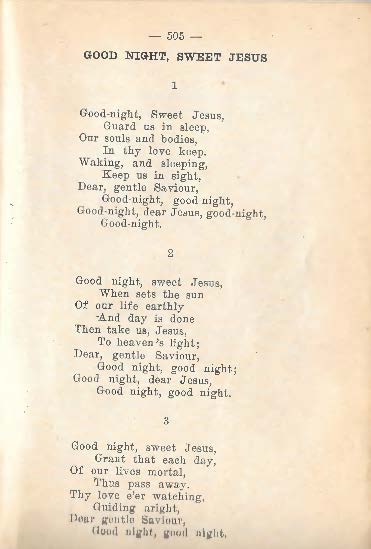 — 505 —
GOOD NIGHT, SWEET JESUS
1
Good-night, Sweet Jesus,
Guard us in sleep,
Our souls and bodies,
In thy love keep.
Waking, and sleeping,
Keep us in sight,
Dear, gentle Saviour,
Good-night, good night,
Good-night, dear Jesus, good-night,
Good-night.
2
Good night, sweet Jesus,
When sets the sun
Of our life earthly
And day is done
Then take us, Jesus,
To heaven's light;
Dear, gentle Saviour,
Good night, good night;
Good night, dear Jesus,
Good night, good night.
3
Good night, sweet Jesus,
Grant that each day,
Of our lives mortal,
Thus pass away.
Thy love e'er watching,
Guiding aright,
Dear gentle Saviour,
Good night, good night,